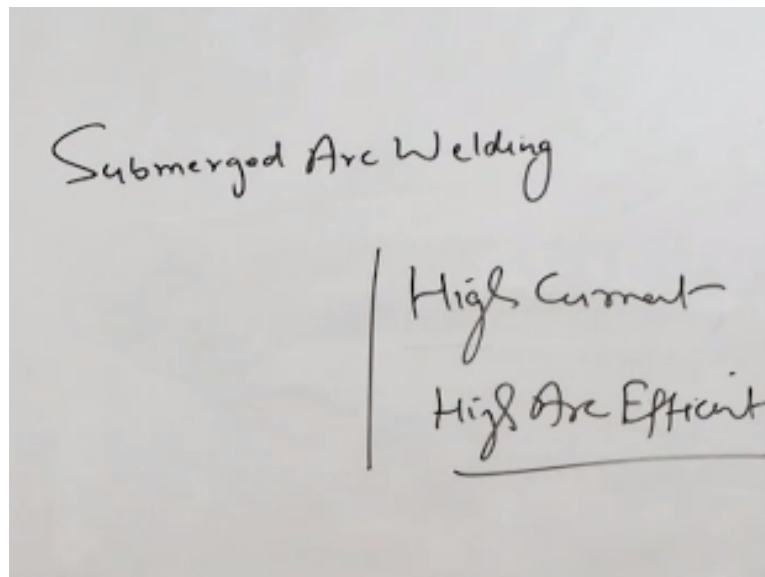 Submerged Arc Welding
High Current
High Arc Efficient